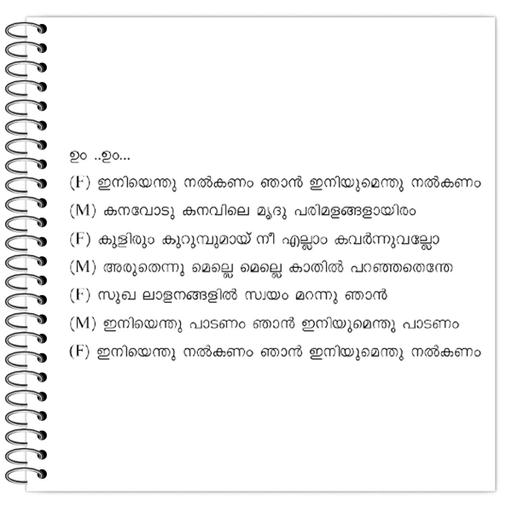 ഉം ..ഉം...
(F) ഇനിയെന്തു നൽകണം ഞാൻ ഇനിയുമെന്തു നൽകണം
(M) കനവോടു കനവിലെ മൃദു പരിമളങ്ങളായിരം
(F) കുളിരും കുറുമ്പുമായ് നീ എല്ലാം കവർന്നുവല്ലോ
(M) അരുതെന്നു മെല്ലെ മെല്ലെ കാതിൽ പറഞ്ഞതെന്തേ
(F) സുഖ ലാളനങ്ങളിൽ സ്വയം മറന്നു ഞാൻ
(M) ഇനിയെന്തു പാടണം ഞാൻ ഇനിയുമെന്തു പാടണം
(F) ഇനിയെന്തു നൽകണം ഞാൻ ഇനിയുമെന്തു നൽകണം